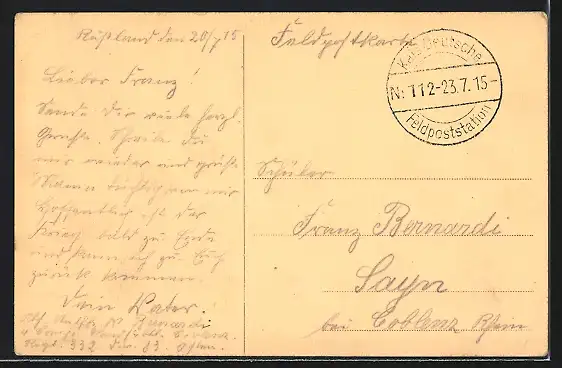 Rußland den 20/7 15
Lieber Franz!
Sende Dir viele herzl.
Grüße. Schreibe Du
mir wieder und grüße
Mama von mir
Hoffentlich ist der
Krieg bald zu Ende
und kann ich zu Euch
zurück kommen.
Dein Vater.
Bernardi
Regt. 332
Feldpostkarte
Kais. Deutsche
Nr 112 - 23.7.15 -
Feldpoststation
Schüler
Franz Bernardi
Sayn
bei Coblenz Rhein